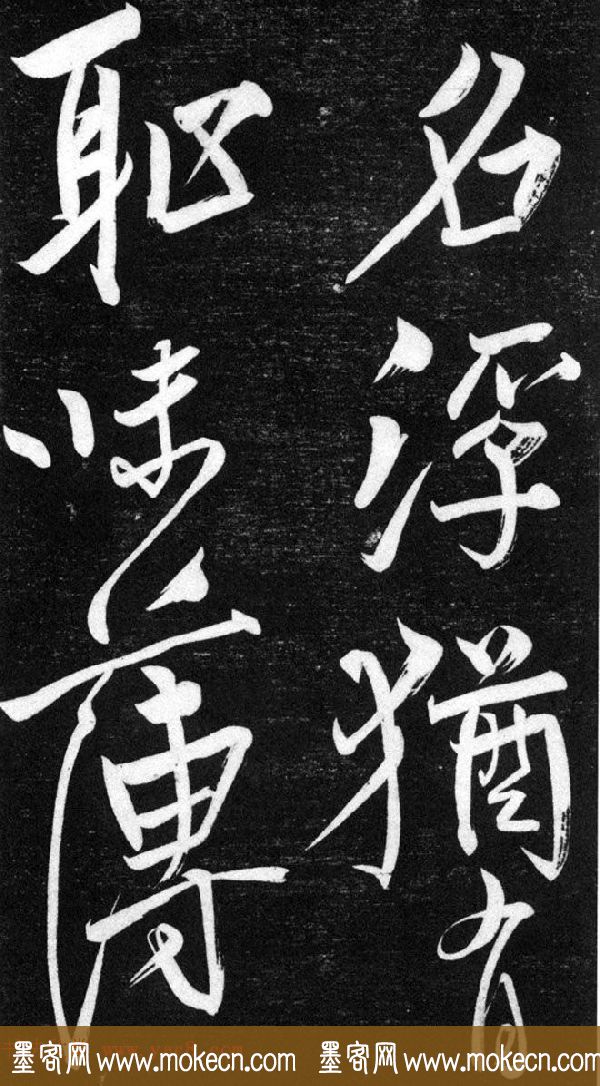 名浮猶有
恥味薄
墨客网 www.mokecn.com 墨客网 www.mokecn.com